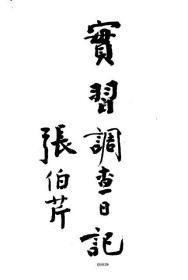 實習調查日記
張伯芹